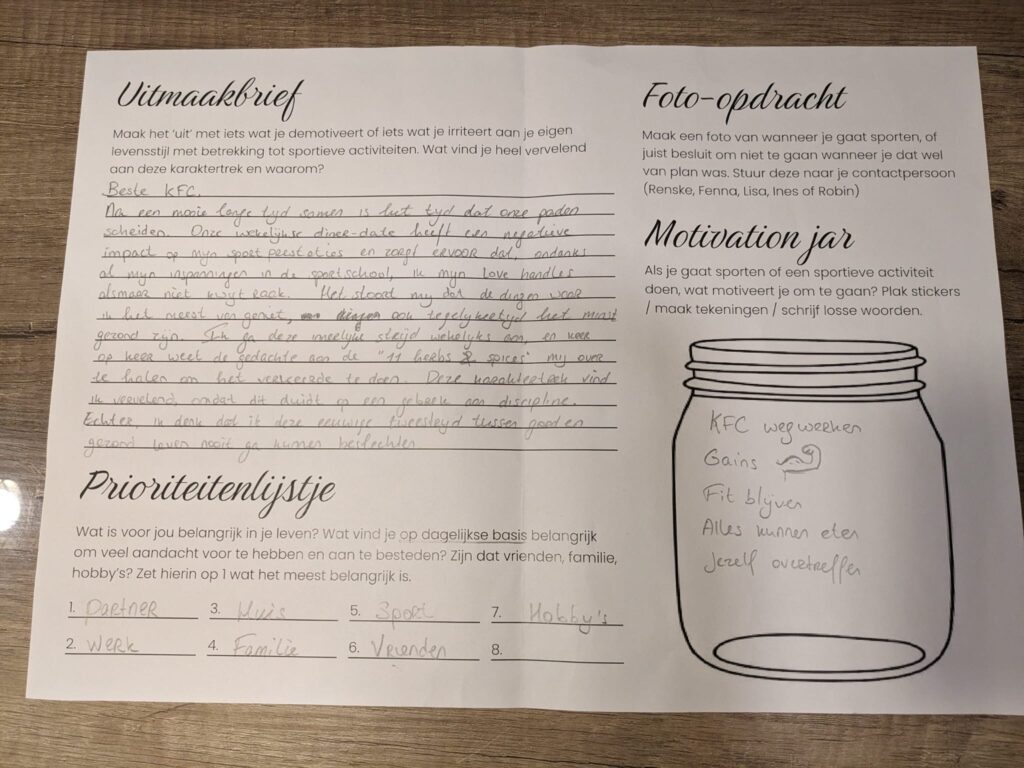 Uitmaakbrief
Maak het 'uit' met iets wat je demotiveert of iets wat je irriteert aan je eigen
levensstijl met betrekking tot sportieve activiteiten. Wat vind je heel vervelend
aan deze karaktertrek en waarom?
Beste KFC.
Na een mooie lange tijd samen is het tijd dat onze paden
scheiden. Onze wekelijkse diner-date heeft een negatieve
impact op mijn sport prestaties en zorgt ERVOOR dat, ondanks
al mijn inspanningen in de sportschool, ik mijn love handles
alsmaar niet kwijt raak. Het stoord mij dat de dingen waar
ik het meest van geniet, ook tegelijkertijd het minst
gezond zijn. Ik ga deze moeilijke strijd wekelijks aan, en keer
op keer weet de gedachte aan de "11 herbs & spices" mij over
te halen om het verkeerde te doen. Deze karaktertrek vind
ik vervelend, omdat dit duidt op een gebrek aan discipline.
Echter, ik denk dat ik deze eeuwige tweestrijd tussen goed en
gezond leven nooit ga kunnen beslechten.
Prioriteitenlijstje
Wat is voor jou belangrijk in je leven? Wat vind je op dagelijkse basis belangrijk
om veel aandacht voor te hebben en aan te besteden? Zijn dat vrienden, familie,
hobby's? Zet hierin op 1 wat het meest belangrijk is.
1. Partner 3. Huis 5. Sport 7. Hobby's
2. Werk 4. Familie 6. Vrienden 8.
Foto-opdracht
Maak een foto van wanneer je gaat sporten, of
juist besluit om niet te gaan wanneer je dat wel
van plan was. Stuur deze naar je contactpersoon
(Renske, Fenna, Lisa, Ines of Robin)
Motivation jar
Als je gaat sporten of een sportieve activiteit
doen, wat motiveert je om te gaan? Plak stickers
/ maak tekeningen / schrijf losse woorden.
KFC wegwerken
Gains
Fit blijven
Alles kunnen eten
Jezelf overtreffen